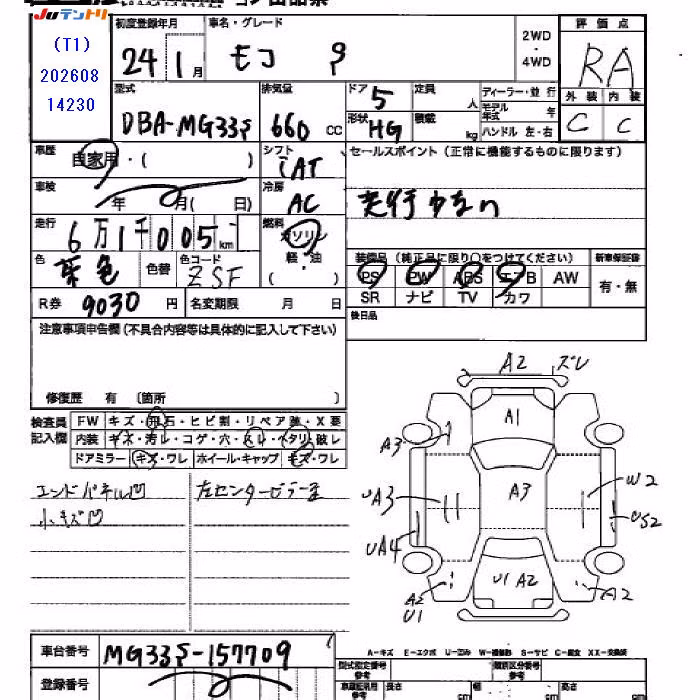 Juテントリ
(T1)
202608
14230
初度登録年月
24 1月
車名・グレード
モコ
2WD
・
4WD
評価点
RA
外装 内装
C C
型式
DBA-MG33S
排気量
660 CC
ドア
5
形状
HG
定員
人
積載
kg
ディーラー・並行
モデル年式 年
ハンドル 左・右
車歴
自家用・( )
シフト
車検
年 月( 日)
冷房
AC
走行
6万1千005km
燃料
ガソリン
軽・油
( )
色
茶色
色替
色コード
ZSF
R券 9030 円
名変期限 月 日
セールスポイント(正常に機能するものに限ります)
装備品(純正品に限り○をつけてください)
PS PW ABS エアB AW
SR ナビ TV カワ
新車保証書
有・無
後日品
注意事項申告欄(不具合内容等は具体的に記入して下さい)
修復歴 有 〔箇所 〕
検査員
記入欄
FW キズ・飛石・ヒビ割・リペア跡・X要
内装 キズ・汚レ・コゲ・穴・スレ・ヘタリ・破レ
ドアミラー キズ・ワレ ホイール・キャップ キズ・ワレ
エンドパネル凹
小キズ凹
左センターピラー
A2 ズレ
A1
A3
A3
UA3
UA4
W2
US2
A2
U1
U1 A2
A2
車台番号 MG33S-157709
登録番号
A-キズ E-エクボ U-凹み W-補修跡 S-サビ C-腐食 XX-交換済
型式指定番号
類別区分番号
長さ cm
幅 cm
高さ cm